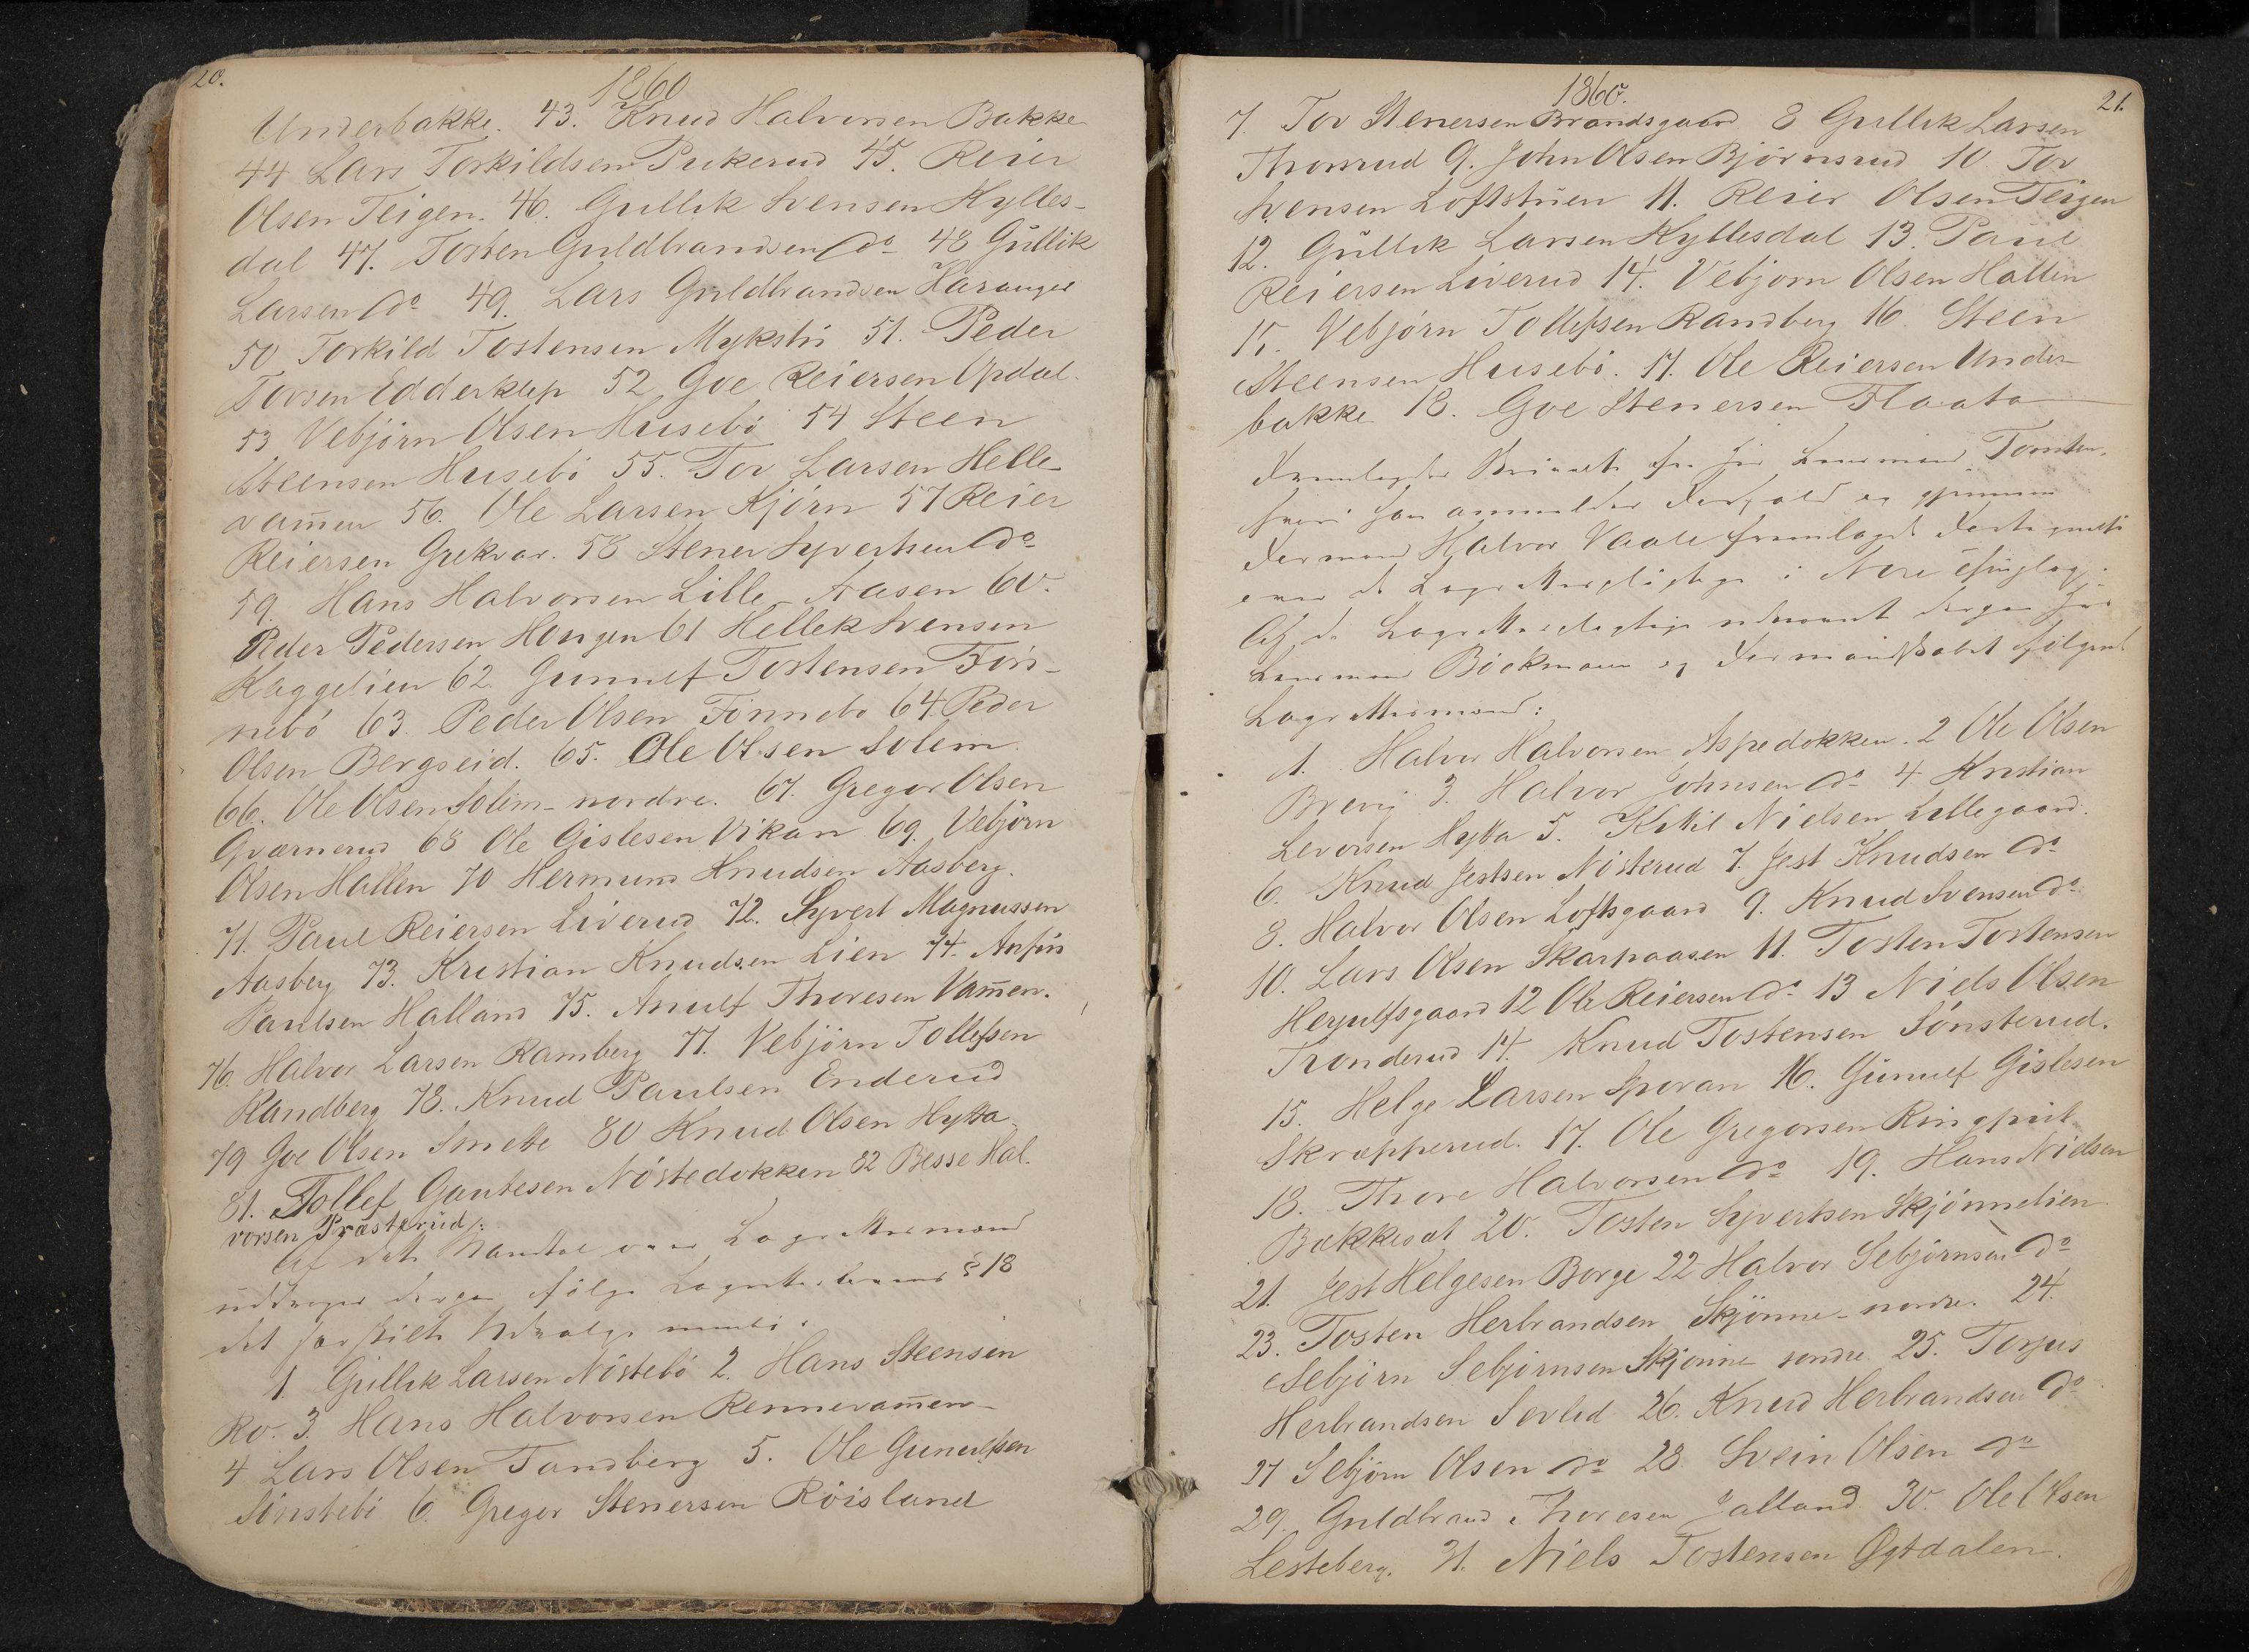 20.
1860
Underbakke. 43. Knud Halvorsen Bakke
44 Lars Torkildsen Pukerud 45. Reier
Olsen Teigen. 46. Gullik Svensen Kylles-
dal 47. Tosten Guldbrandsen do 48 Gullik
Larsen do 49. Lars Guldbrandsen
50 Torkild Tostensen Mykstu 51. Peder
Torsen Edderklep 52 Goe Reiersen Opdal
53 Vebjörn Olsen Husebö 54 Steen
Steensen Husebö 55. Tor Larsen Helle-
vam̄en 56. Ole Larsen Kjörn 57 Reier
Reiersen 58 Stener Syvertsen do
59. Hans Halvorsen Lille-Aasen 60.
Peder Pedersen Hougen 61 Hellek Svensen
Kaggelien 62. Gunnulf Tostensen Fön-
nebö 63. Peder Olsen Fönnebö 64. Peder
Olsen Bergseid. 65. Ole Olsen Solem.
66. Ole Olsen Solem-nordre. 67. Gregor Olsen
Qværnerud 68 Ole Gislesen Vikan 69. Vebjörn
Olsen Hallen 70 Hermund Knudsen Aasberg.
71. Paul Reiersen Liverud 72. Syvert Magnussen
Aasberg 73. Kristian Knudsen Lien 74. Anfin
Paulsen Halland 75. Anulf Thoresen Vam̄en.
76. Halvor Larsen Ramberg 77. Vebjörn Tollefsen
Randberg 78. Knud Paulsen Enderud
79 Goe Olsen Smebe 80 Knud Olsen Hytta
81. Tollef Gautesen Nöstedokken 82 Besse Hal-
vorsen Prästerud/:
Af dette Mandtal over Lagrettesmænd
uddrages ifölge § 18
det særskilte Udvalg
1. Gullik Larsen Nöstebö 2. Hans Steensen
Ro. 3. Hans Halvorsen Rennevam̄en
4 Lars Olsen Tandberg 5. Ole Gunulfsen
Sönstebö 6. Gregor Stenersen Röisland
21.
1860.
7. Tor Stenersen Brandsgaard 8 Gullik Larsen
Thorsrud 9. John Olsen Björnsrud 10. Tor
Svensen Loftstuen 11. Reier Olsen Teigen
12. Gullik Larsen Kyllesdal 13. Paul
Reiersen Liverud 14. Vebjorn Olsen Hallen
15. Vebjörn Tollefsen Randberg 16. Steen
Steensen Husebö. 17. Ole Reiersen Under-
bakke 18. Goe Stenersen Flaata
fra Lensmand
han anmelder Forfald og gjennem
Halvor Vaale fremlagde
over de i Nore
Af de
Lensmand Böckmann og Formandskabet fölgende
Lagrettesmænd:
1. Halvor Halvorsen Aspedokken. 2 Ole Olsen
Brevig 3. Halvor Johnsen do 4 Kristian
Leversen Hytta 5. Kittil Nielsen Lillegaard.
6. Knud Jestsen Nösterud 7. Jest Knudsen do
8. Halvor Olsen Loftsgaard 9. Knud Svensen do
10. Lars Olsen Skarpaasen 11. Tosten Tostensen
Herjulfsgaard 12 Ole Reiersen do 13 Niels Olsen
Tronderud 14. Knud Tostensen Sönsterud.
15. Helge Larsen Sporan 16. Gunulf Gislesen
Skræpperud. 17. Ole Gregorsen
18. Thore Halvorsen do 19. Hans Nielsen
Bakkesæt 20. Tosten Syvertsen Skjönnelien
21. Jest Helgesen Borge 22 Halvor Sebjörnsen do
23. Tosten Herbrandsen Skjönne-nordre. 24.
Sebjörn Sebjörnsen Skjönne söndre 25. Torjus
Herbrandsen Sevled 26. Knud Herbrandsen do
27 Sebjörn Olsen do 28. Svein Olsen do
29. Guldbrand Thoresen Jalland 30. Ole Olsen
Lesteberg. 31. Niels Tostensen Øgtdalen.